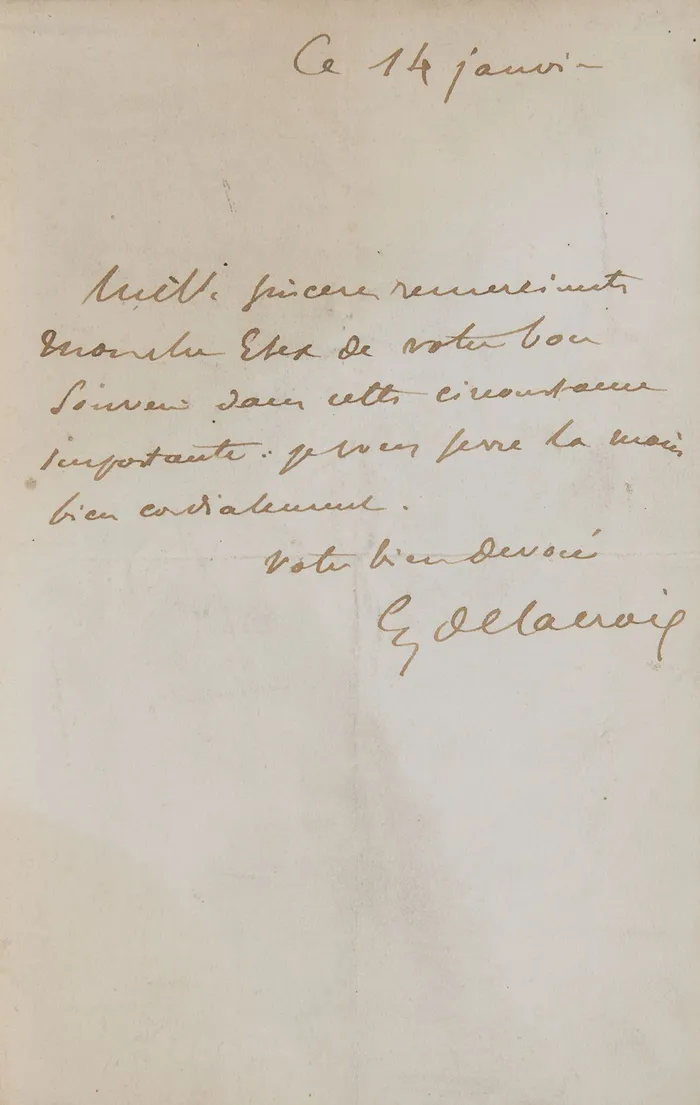 Ce 14 janvier
Mille sincères remerciments
mon cher Etex de votre bon
souvenir dans cette circonstance
importante. je vous serre la main
bien cordialement.
votre bien devoué
Eg Delacroix